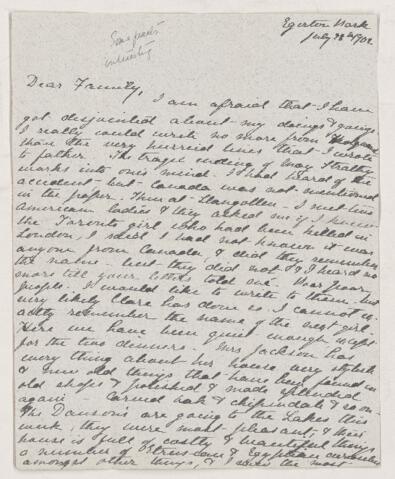 Egerton Park
July 28th 1902
Some parts
interesting
Dear Family,
I am afraid that I have
got disjointed about my doings & goings
I really could write no more from
than the very hurried lines that I wrote
to father. The tragic ending of May
works into one's mind. I had heard of the
accident but Canada was not mentioned
in the paper. Then at Llangollen I met two
American ladies & they asked me if I knew
the Toronto girl who had been killed in
London, I said I had not known it was
anyone from Canada, & did they remember
the name. but they did not & I heard no
more till your letters told me. Poor poor
people. I would like to write to them but
very likely Clare has done so. I cannot
remember the name of the next girl.
Here we have been quiet enough except
for the two dinners. Mrs Jackson has
every thing about his house very stylish
& nine old things that have been found in
old shops & polished & made splendid
again. Carved oak & chipindale & so on
The Dawson's are going to the Lakes this
week, they were most pleasant, & their
house is full of costly & beautiful things
a number of Etruscan & Egyptian curiosities
amongst other things, & I saw the most